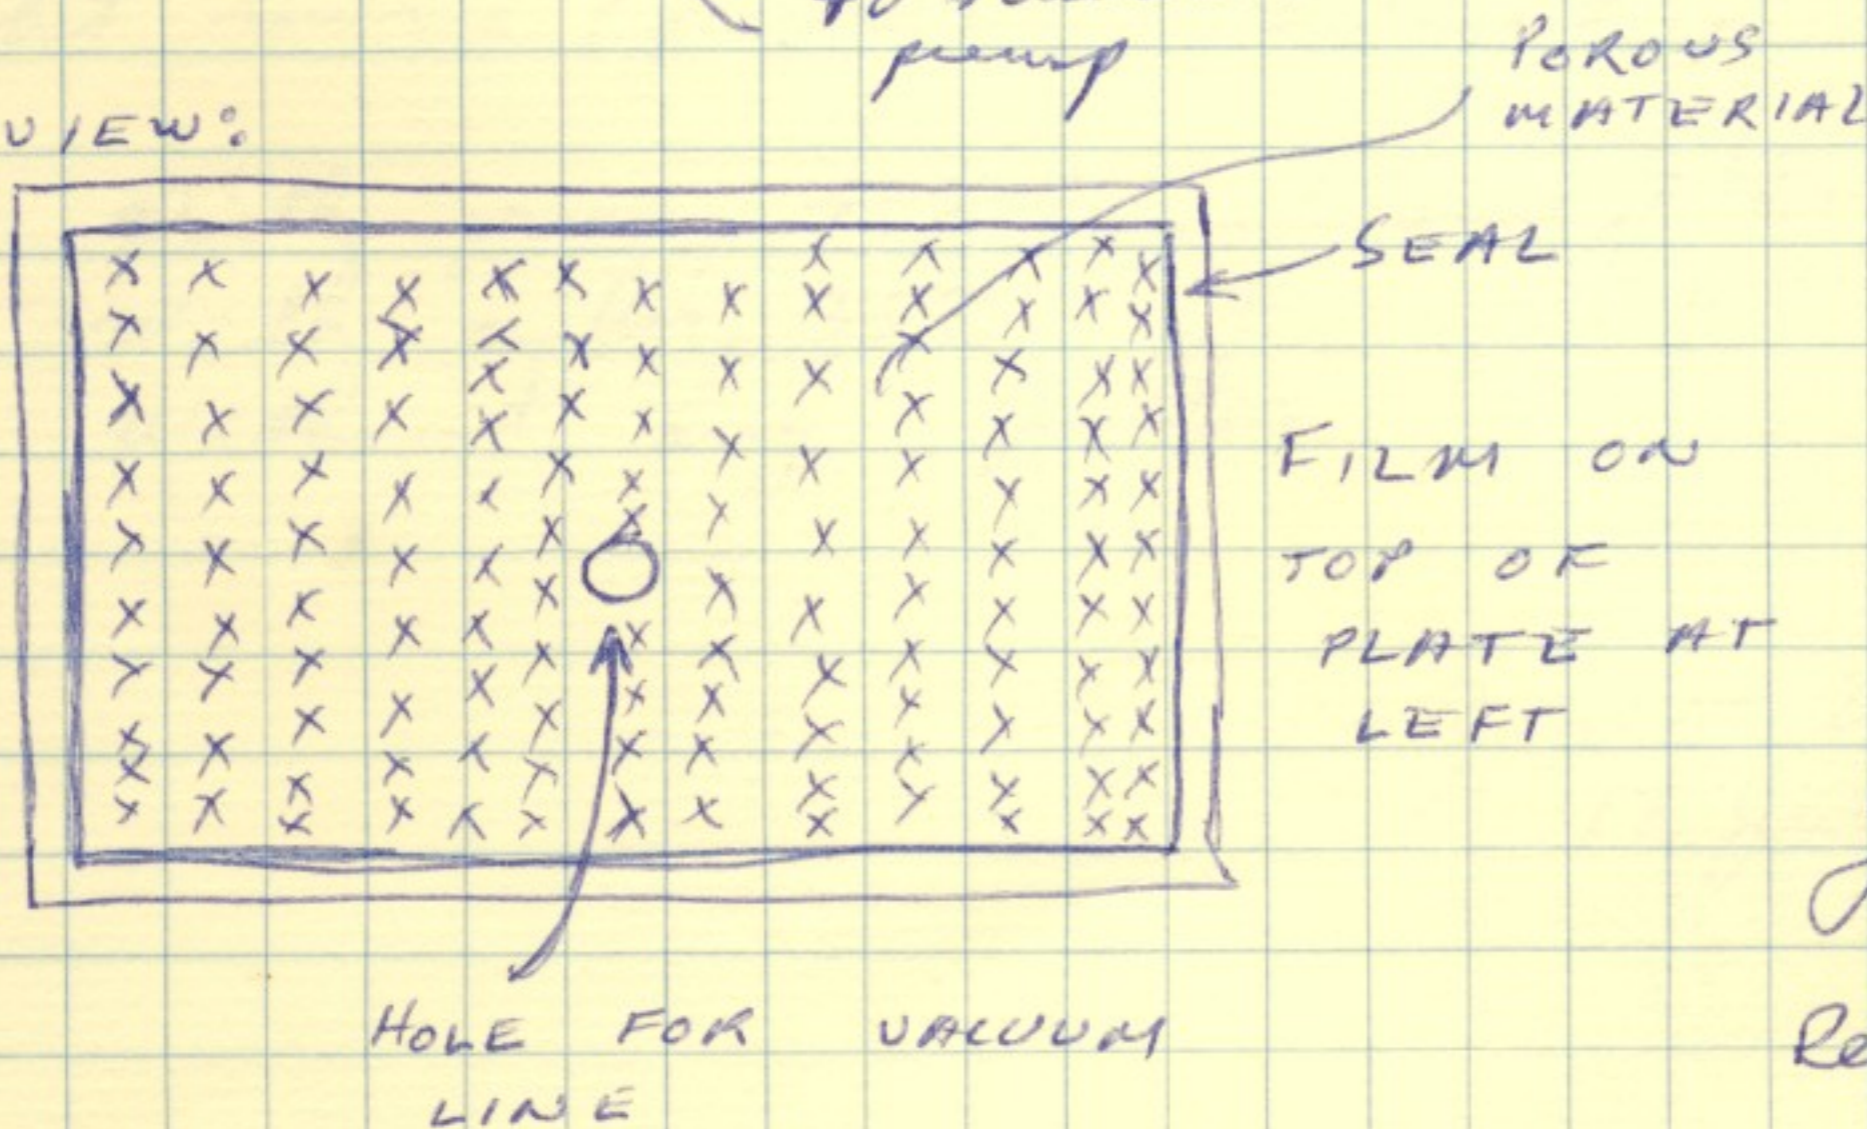 pump
POROUS
MATERIAL
VIEW:
SEAL
FILM ON
TOP OF
PLATE AT
LEFT
HOLE FOR VACUUM
LINE
Re